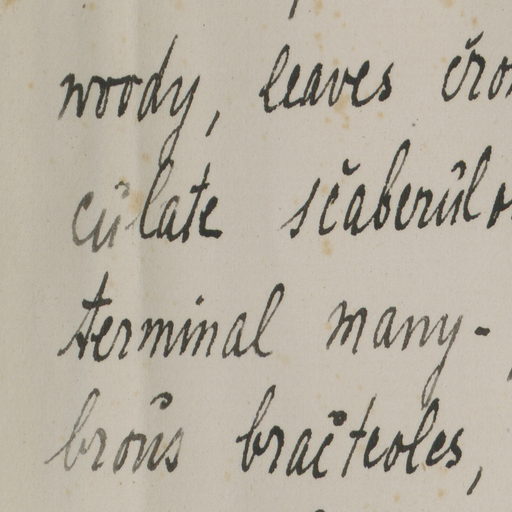 woody, leaves cro
culate scaberulo
terminal many-
brous bracteoles,